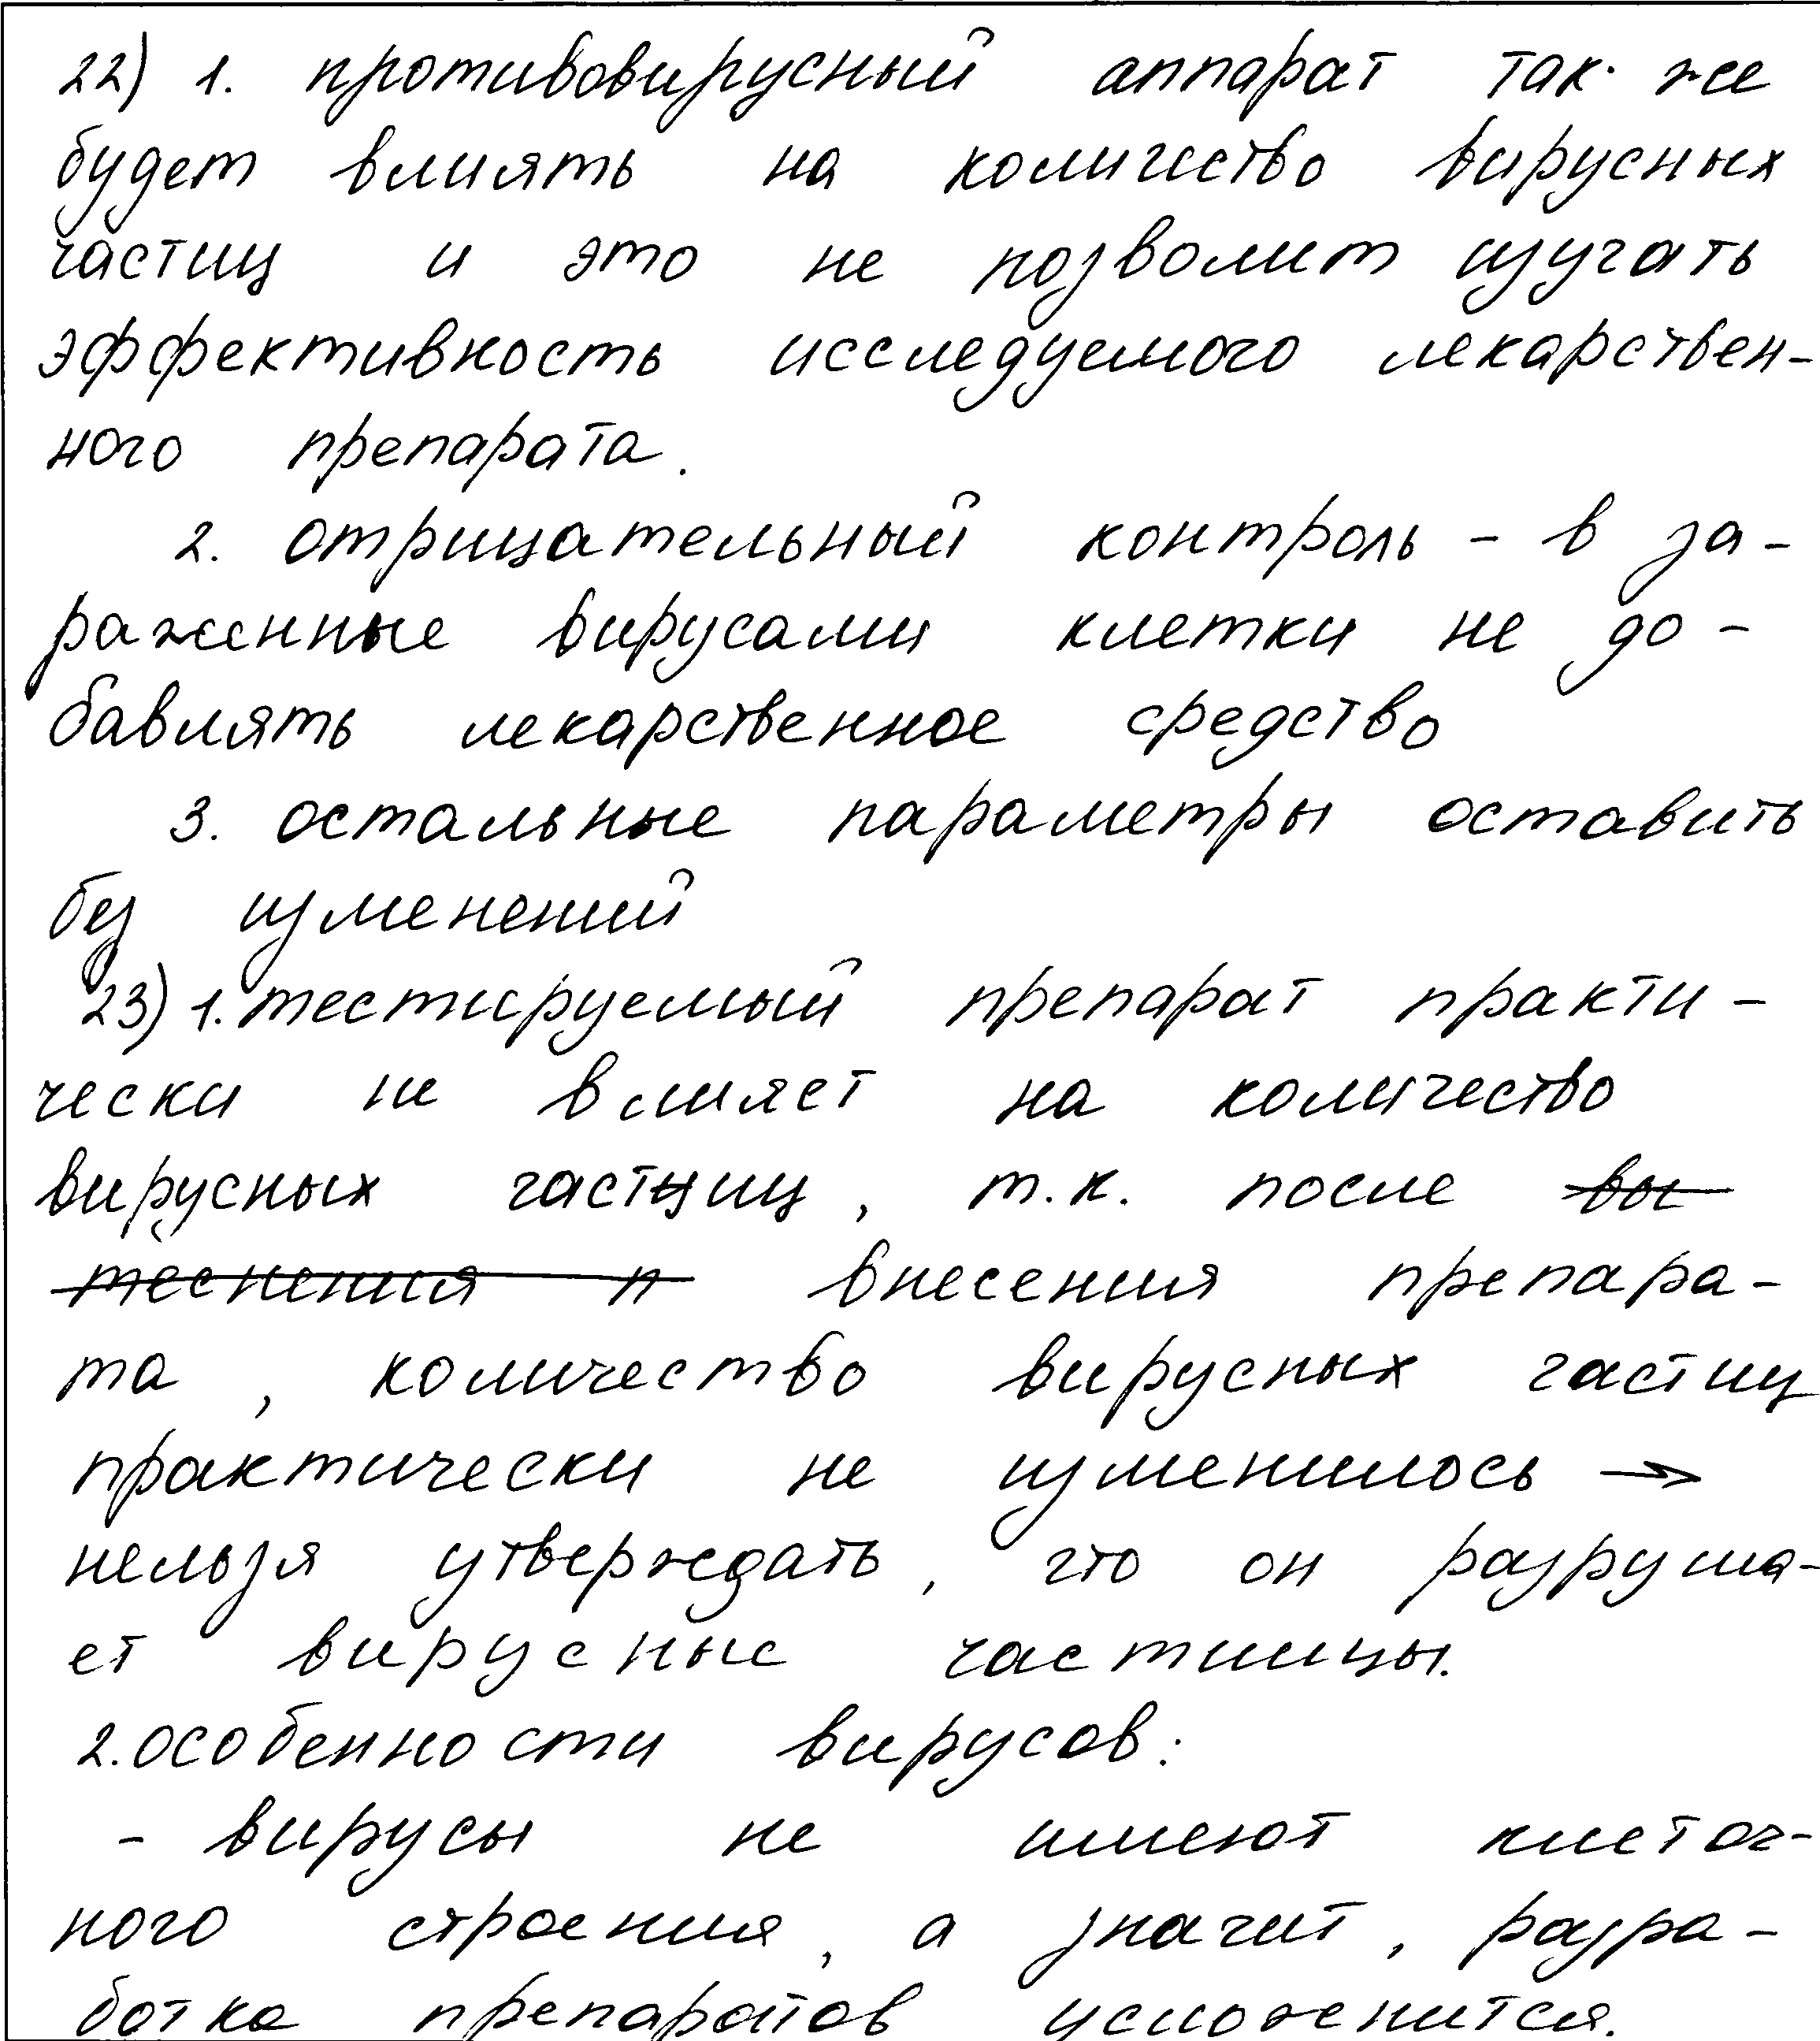 22) 1. противовирусный аппарат так же
будет влиять на количество вирусных
частиц и это не позволит изучать
эффективность исследуемого лекарствен-
ного препарата.
2. отрицательный контроль - в за-
раженные вирусами клетки не до-
бавлять лекарственное средство
3. остальные параметры оставить
без изменений
23) 1. тестируемый препарат практи-
чески не влияет на количество
вирусных частиц, т.к. после вы
теснения п внесения препара-
та, количество вирусных частиц
практически не изменилось →
нельзя утверждать, что он разруша-
ет вирусные частицы.
2. особенности вирусов:
- вирусы не имеют клеточ-
ного строения, а значит, разра-
ботка препаратов усложнится.